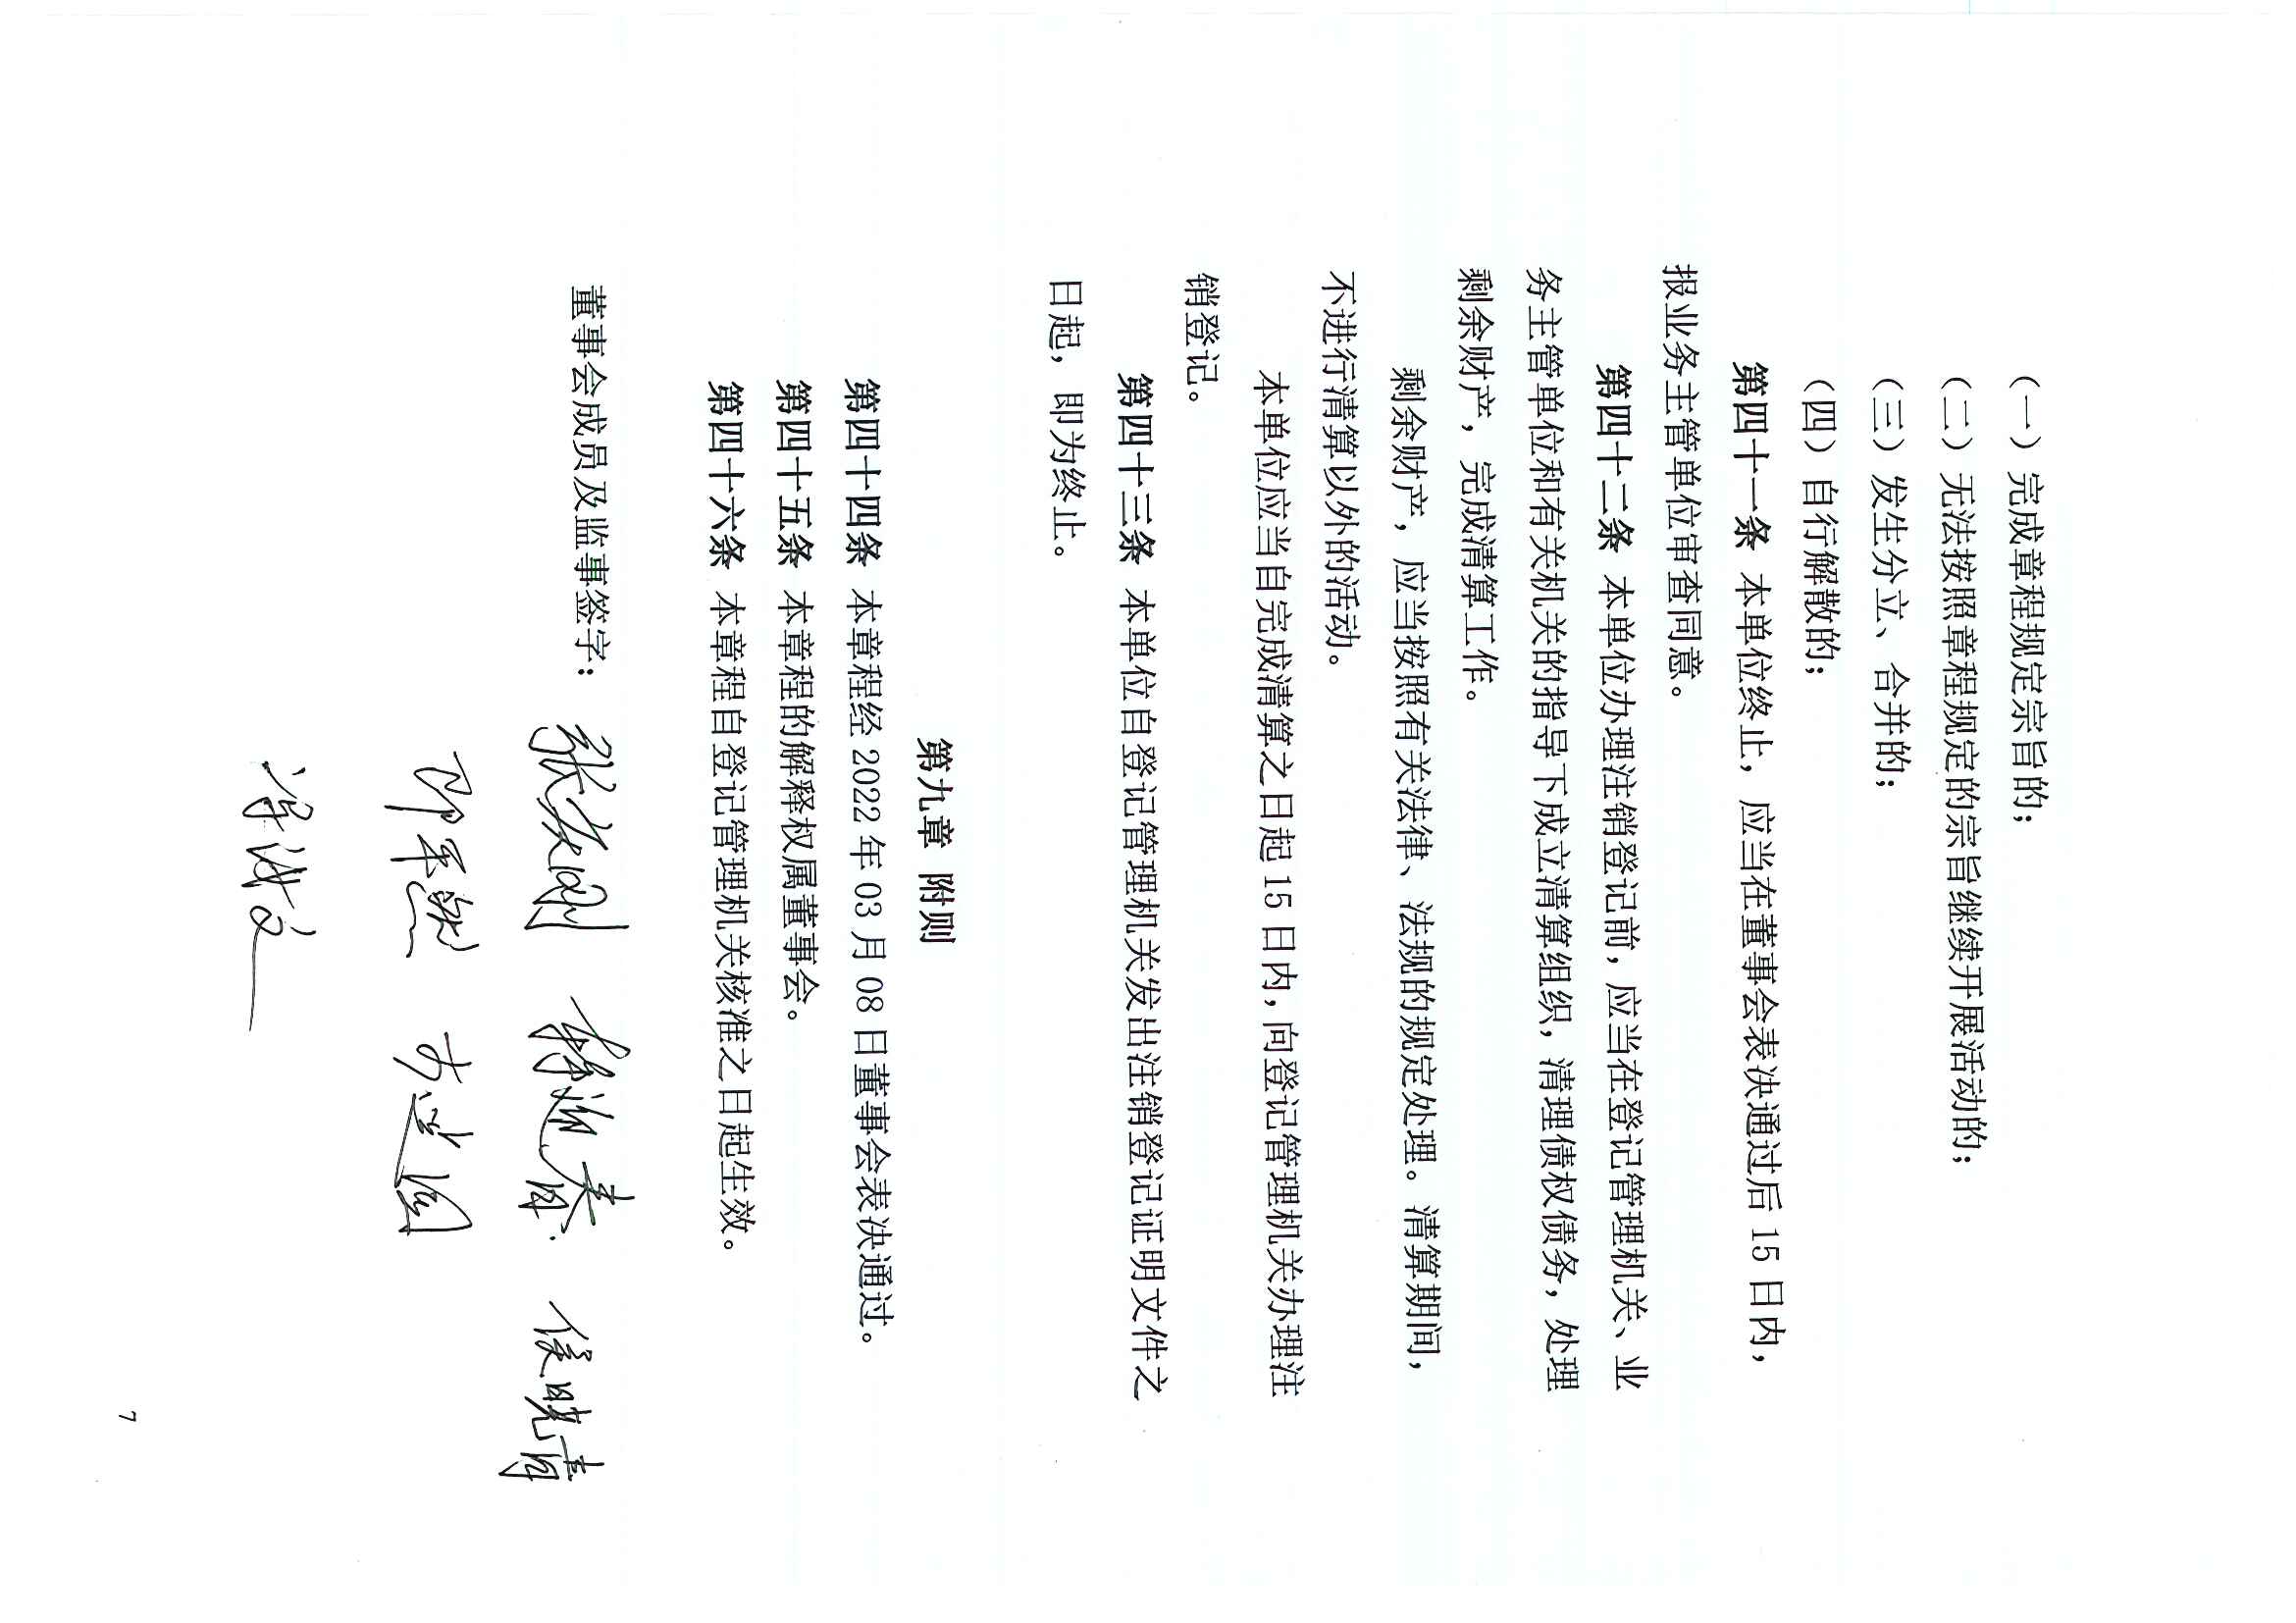 （一）完成章程规定宗旨的；
（二）无法按照章程规定的宗旨继续开展活动的；
（三）发生分立、合并的；
（四）自行解散的；
第四十一条 本单位终止，应当在董事会表决通过后 15 日内，
报业务主管单位审查同意。
第四十二条 本单位办理注销登记前，应当在登记管理机关、业
务主管单位和有关机关的指导下成立清算组织，清理债权债务，处理
剩余财产，完成清算工作。
剩余财产，应当按照有关法律、法规的规定处理。清算期间，
不进行清算以外的活动。
本单位应当自完成清算之日起 15 日内，向登记管理机关办理注
销登记。
第四十三条 本单位自登记管理机关发出注销登记证明文件之
日起，即为终止。
第九章 附则
第四十四条 本章程经 2022 年 03 月 08 日董事会表决通过。
第四十五条 本章程的解释权属董事会。
第四十六条 本章程自登记管理机关核准之日起生效。
董事会成员及监事签字： 侯晓青
7